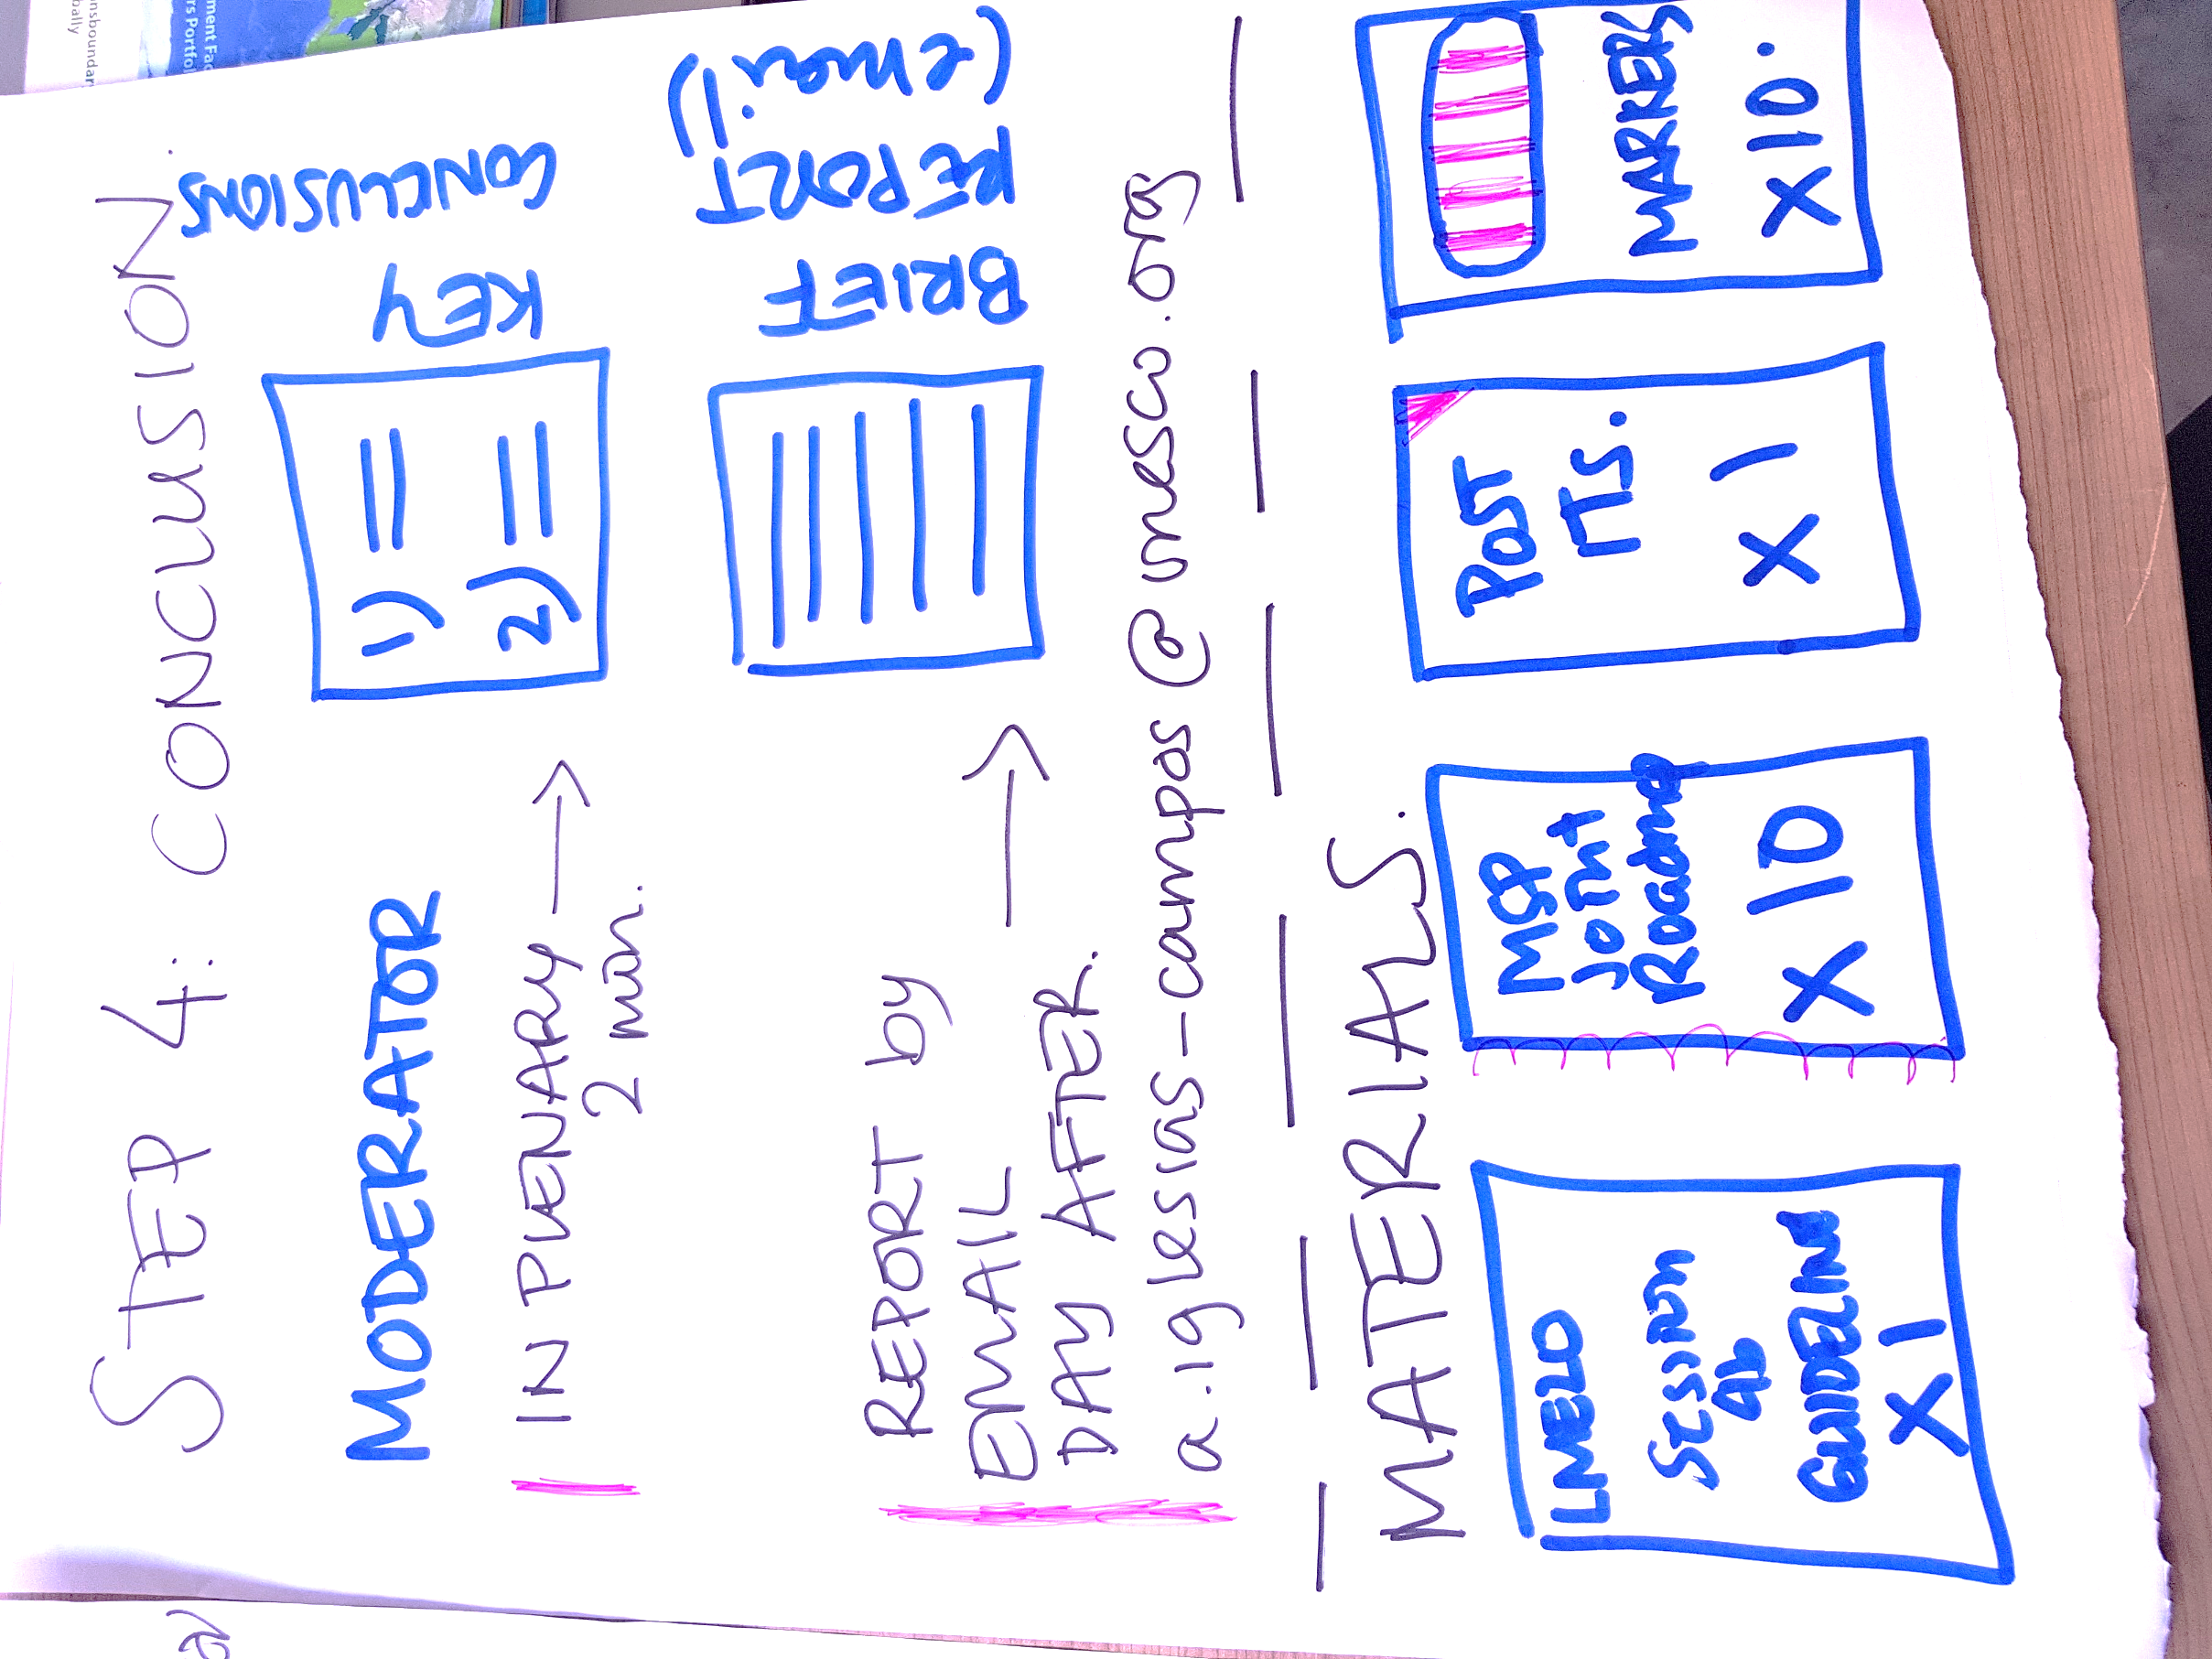 STEP 4: CONCLUSION.
MODERATOR
IN PLENARY →
2 min.
1) =
2) =
KEY
CONCLUSIONS
REPORT by
EMAIL →
DAY AFTER.
BRIEF
REPORT
(email)
a.iglesias-campos@unesco.org
MATERIALS.
SESSION
GUIDELINES
X 1
MSP
JOINT
Roadmap
X 10
POST
ITS.
X 1
MARKERS
X 10.
ment Fac
rs Portfol
nsboundar
bally